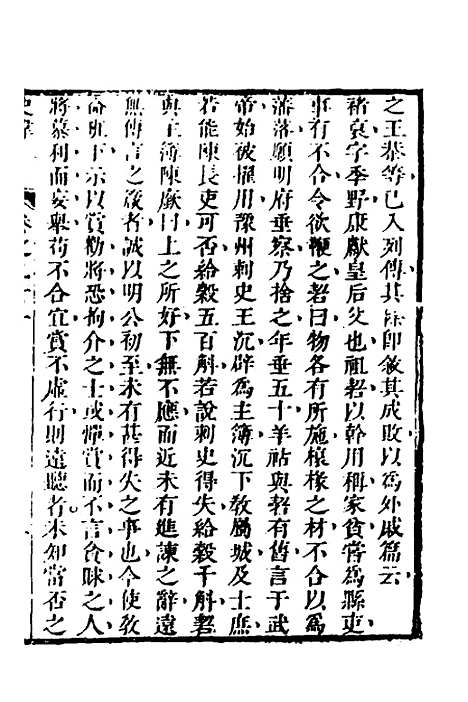 之王恭等已入列傳其餘卽敘其成敗以爲外戚篇云
褚裒字季野康獻皇后父也祖䂮以幹用稱家貧嘗爲縣吏
事有不合令欲鞭之䂮曰物各有所施榱椽之材不合以爲
藩落願明府垂察乃捨之年垂五十羊祜與䂮有舊言于武
帝始被擢用豫州刺史王沉辟爲主簿沉下教屬城及士庶
若能陳長吏可否給穀五百斛若說刺史得失給穀千斛䂮
與主簿陳廞曰上之所好下無不應而近未有進諫之辭遠
無傳言之箴者誠以明公初至未有甚得失之事也今使教
命班下示以賞勸將恐拘介之士或憚賞而不言貪昧之人
將慕利而妄舉苟不合宜賞不虛行則遠聽者未知當否之